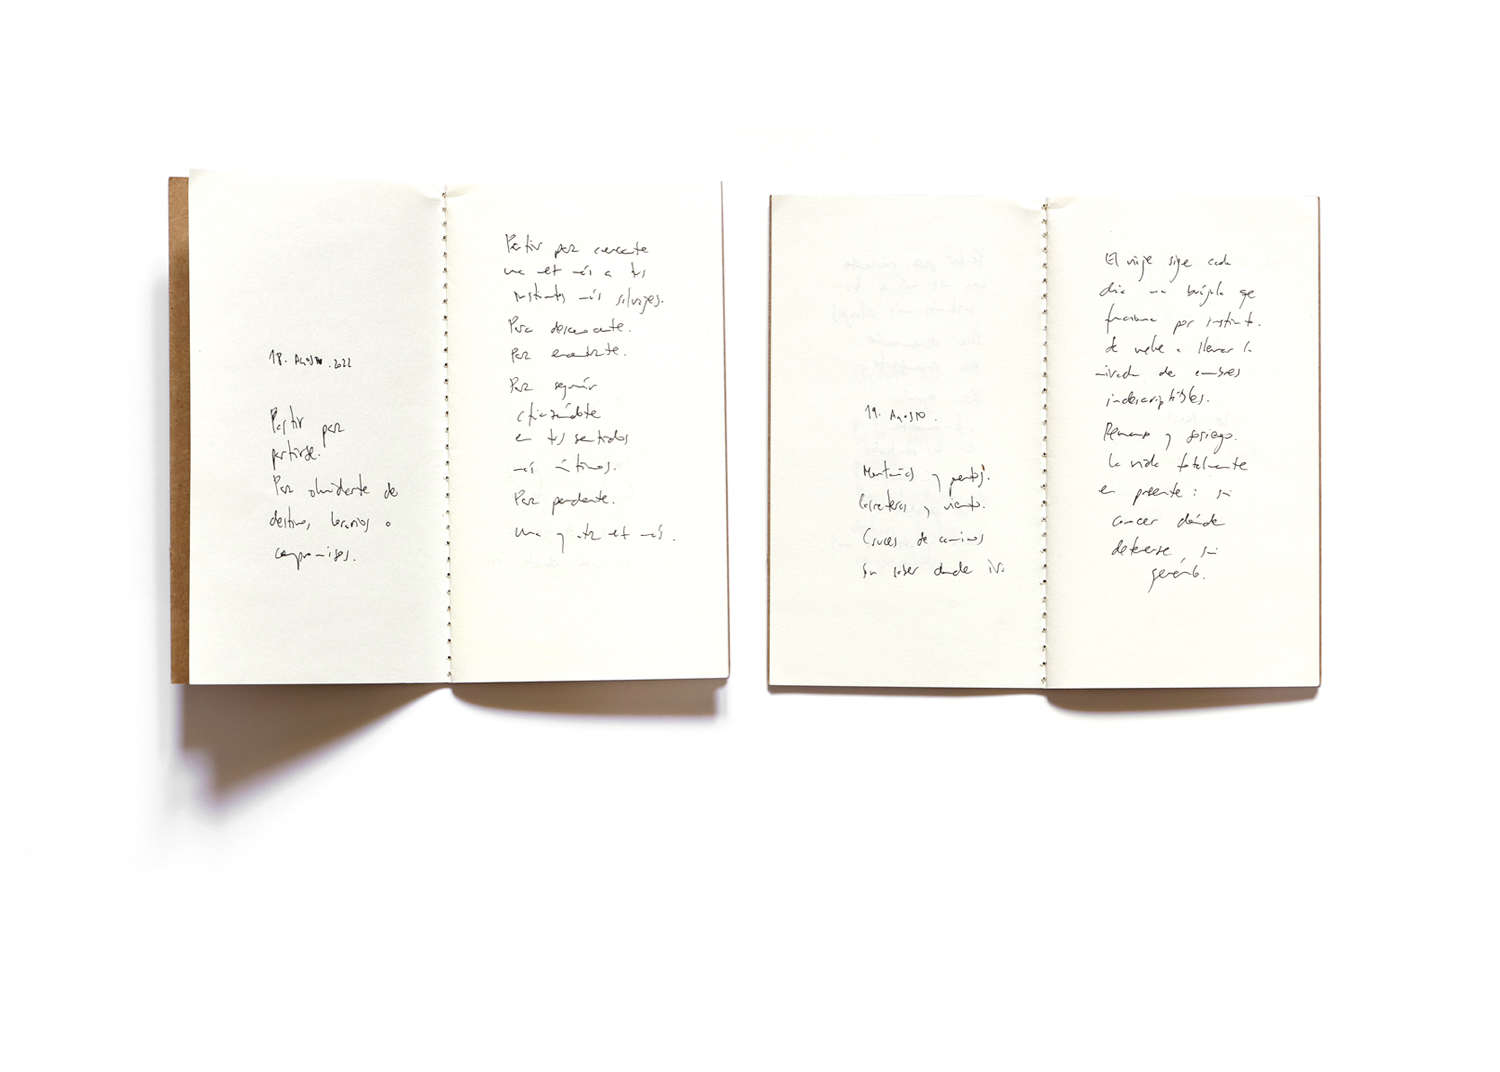 18. Agosto. 2022
Partir para
partirse.
Para olvidarte de
destinos, horarios o
compromisos.
Partir para conocerte
una vez más a tus
instintos más salvajes.
Para desconocerte.
Para encontrarte.
Para seguir
afianzándote
en tus sentidos
más íntimos.
Para perderte.
Una y otra vez más.
19. Agosto.
Montañas y puertos.
Carreteras y viento.
Cruces de caminos
sin saber donde ir.
El viaje sigue cada
día una brújula que
funciona por instinto.
Se vuelve a llenar la
mirada de cumbres
indescriptibles.
Remanso y sosiego.
La vida totalmente
en presente: sin
conocer dónde
detenerse, sin